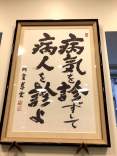 病気を診ずして
病人を診よ